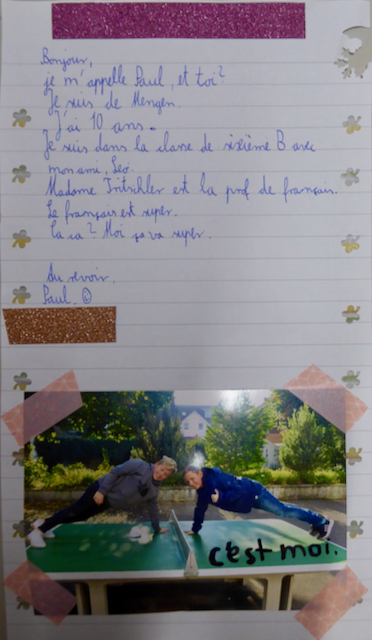 Bonjour,
je m'appelle Paul, et toi?
Je suis de Mengen.
J'ai 10 ans.
Je suis dans la classe de sixième B avec
mon ami, Léo.
Madame Fritschler est la prof de français.
Le français est super.
Ça va? Moi ça va super.
Au revoir.
Paul. ☺
c'est moi.